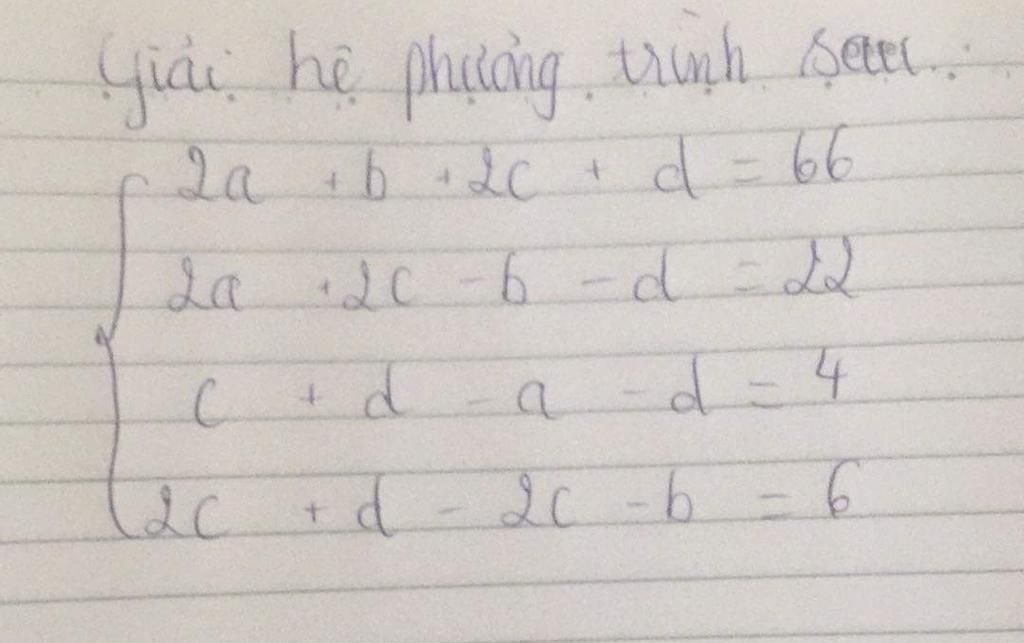 Giải hệ phương trình sau:
2a + b + 2c + d = 66
2a + 2c - b - d = 22
c + d - a - d = 4
2c + d - 2c - b = 6